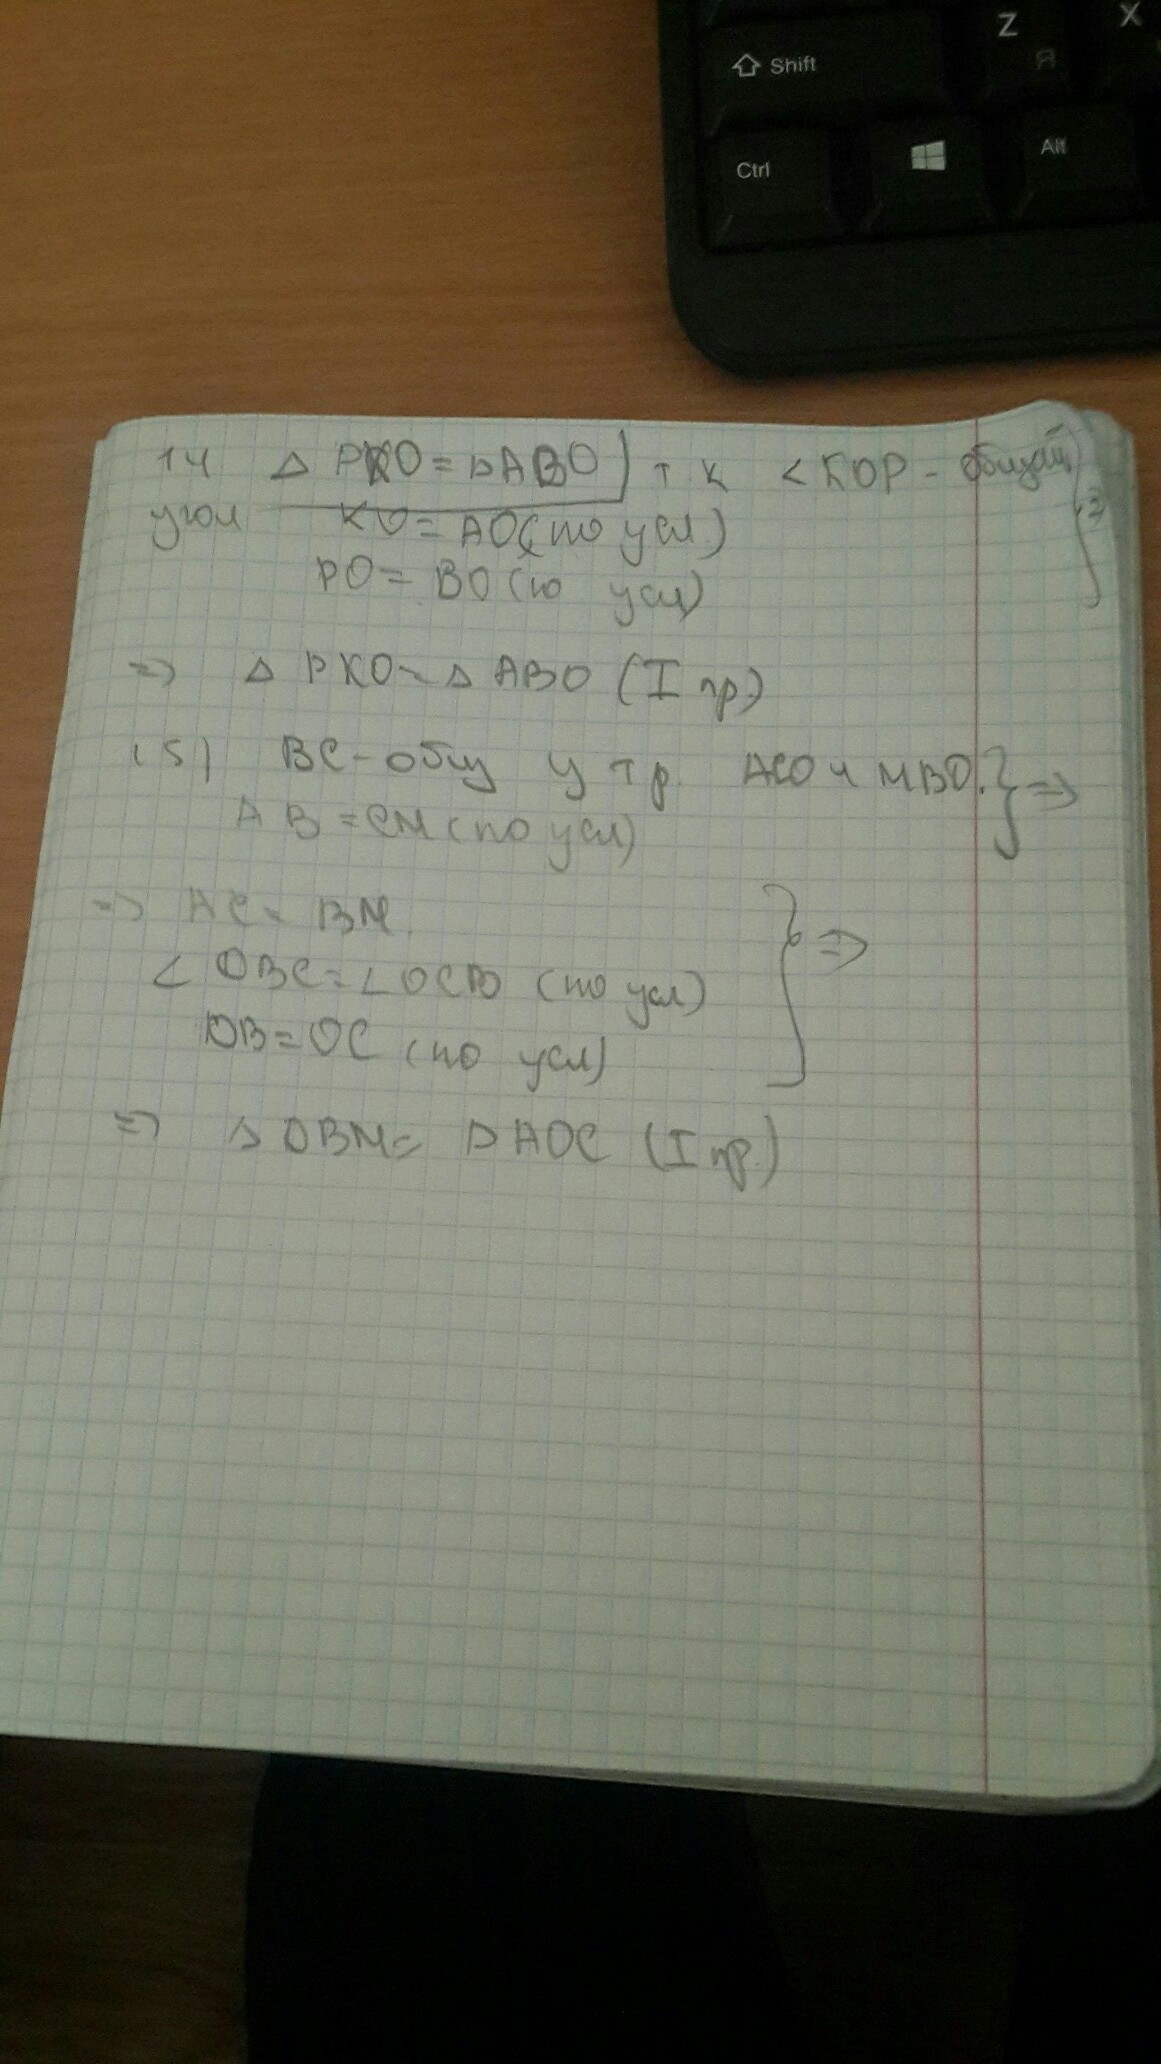 Z
X
Я
Shift
Ctrl
Alt
14 △ PKO = △ABO т к <KOP - общий
угол KO = AO (по усл)
PO = BO (по усл)
=> △ PKO = △ ABO (I пр)
15) BC - общ у тр. ACO и MBO. } =>
AB = CM (по усл)
=> AC = BM.
∠ OBC = ∠ OCB (по усл) } =>
OB = OC (по усл)
=> △ OBM = △ AOC (I пр.)